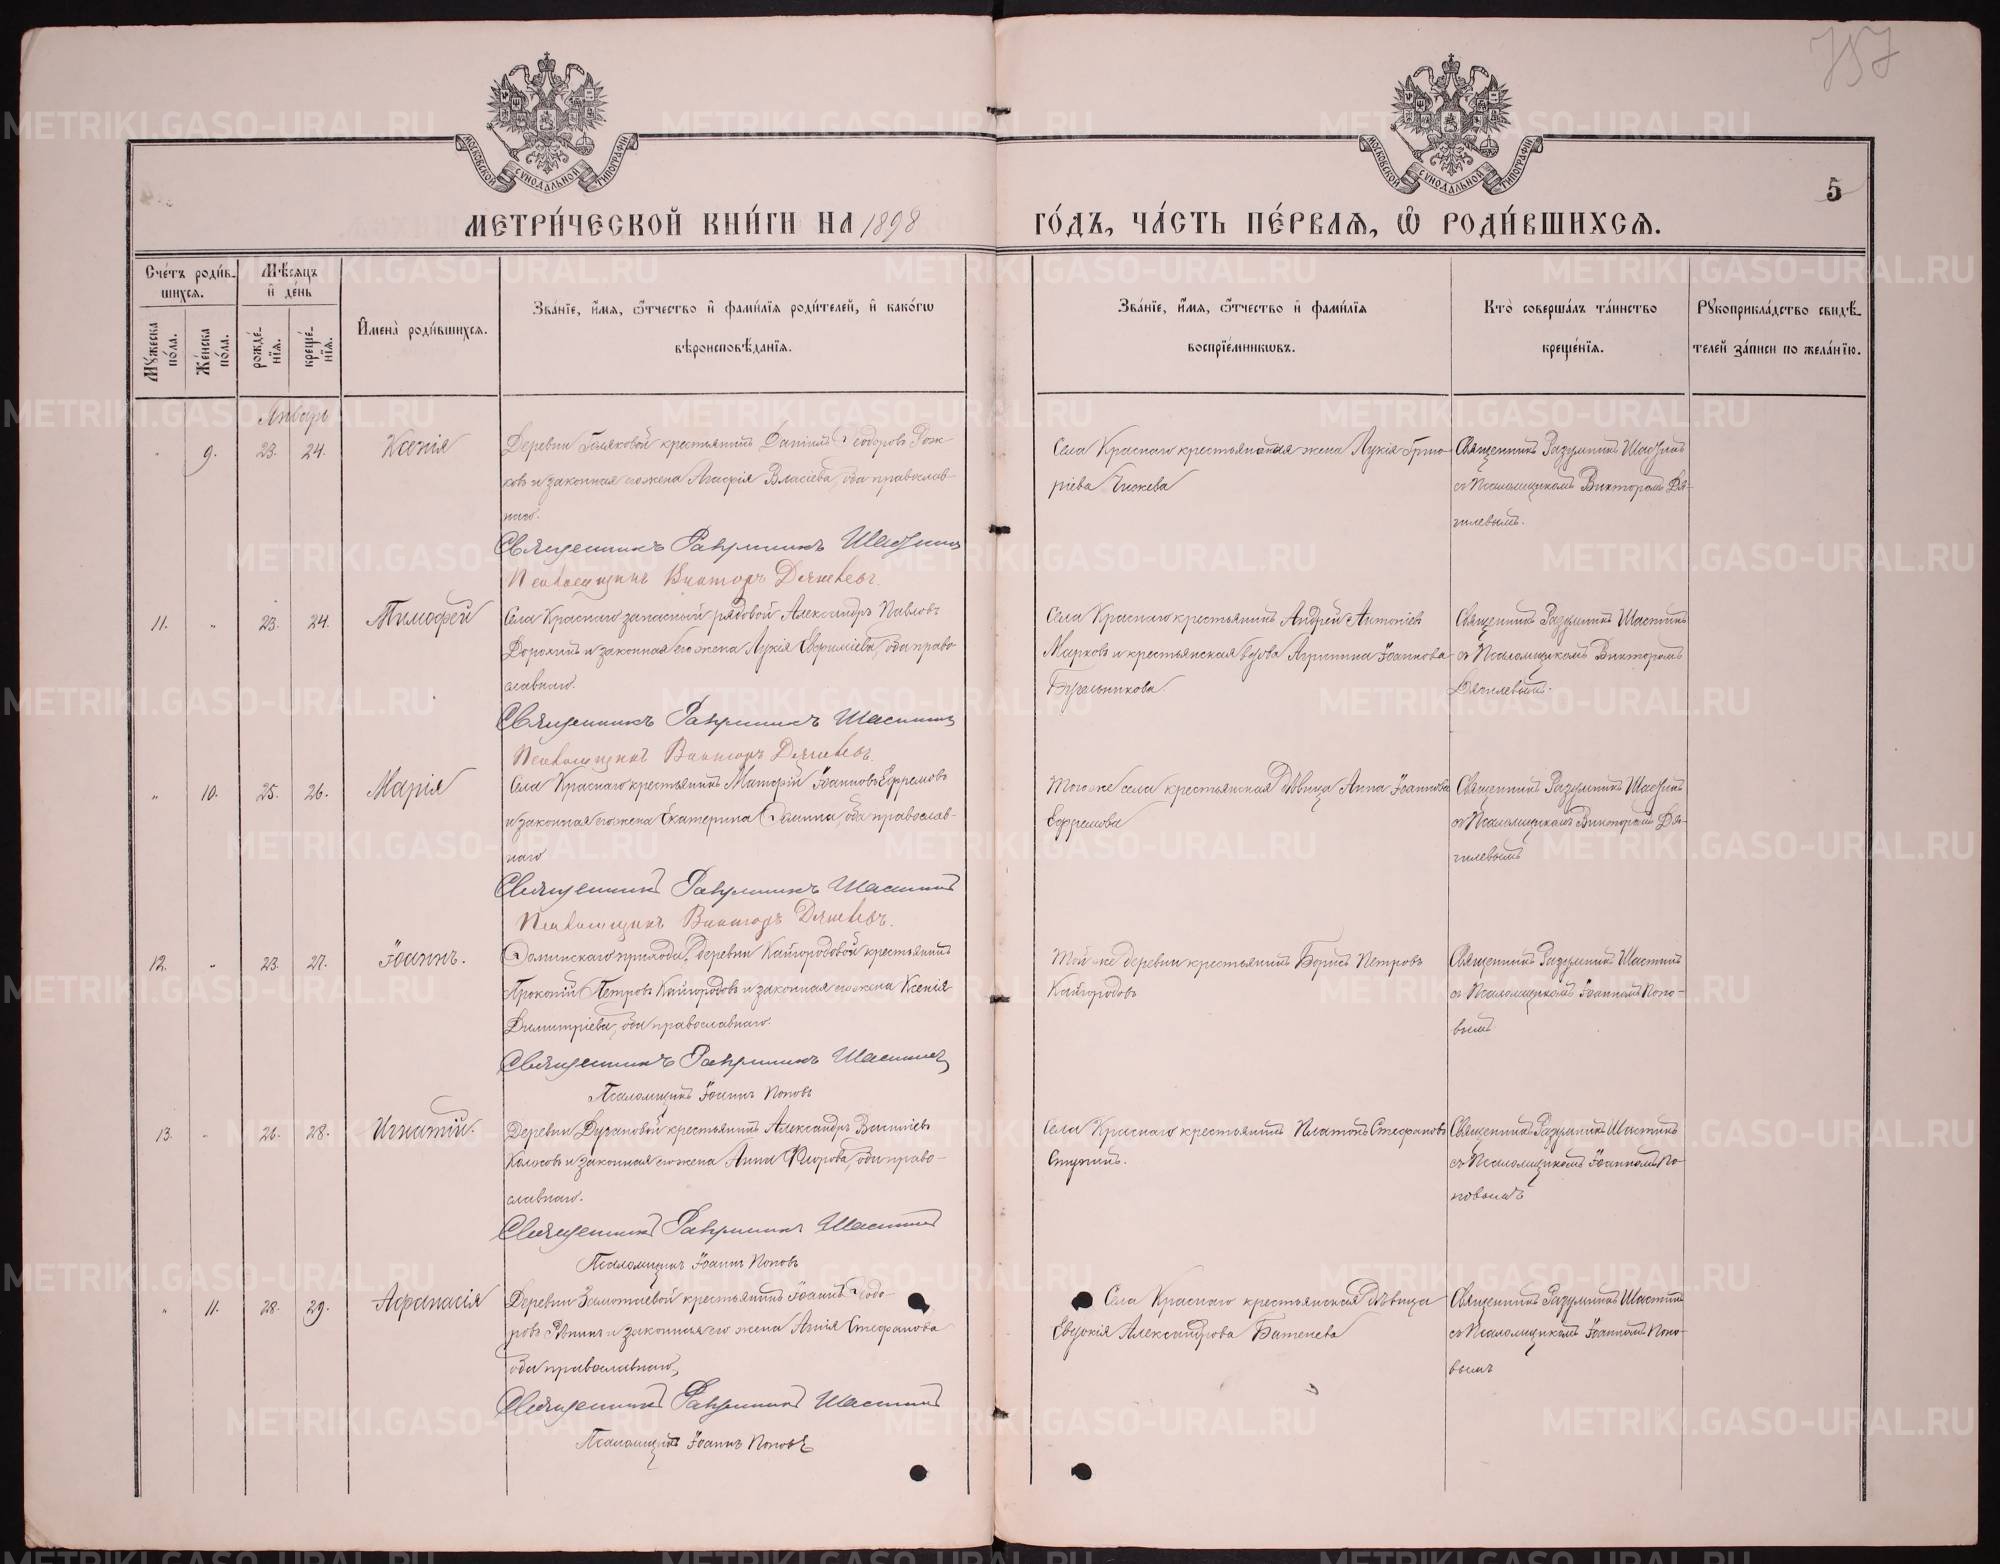 757
МОСКОВСКОЙ СѴНОДАЛЬНОЙ ТИПОГРАФІИ
МОСКОВСКОЙ СѴНОДАЛЬНОЙ ТИПОГРАФІИ
5
МЕТРИ́ЧЕСКОЙ КНИ́ГИ НА 1898 ГО́ДЪ, ЧА́СТЬ ПЕ́РВАѦ, Ѽ РОДИ́ВШИХСѦ.
Сче́тъ роди́в-
шихсѧ.
Мꙋжеска по́ла.
Же́нска по́ла.
Мѣ́сѧцъ
и҆ де́нь
рожде́-
нїѧ.
креще́-
нїѧ.
И҆мена̀ роди́вшихсѧ.
Зва́нїе, и҆́мѧ, ѻ҆́тчество и҆ фами́лїѧ роди́телей, и҆ како́гѡ
вѣроисповѣ́данїѧ.
Зва́нїе, и҆́мѧ, ѻ҆́тчество и҆ фами́лїѧ
воспрїе́мникѡвъ.
Кто̀ соверша́лъ та́инство
креще́нїѧ.
Рꙋкоприкла́дство свидѣ́-
телей за́писи по жела́нїю.
Январь
" 9. 23. 24. Ксенія
Деревни Голяковой крестьянинъ Даніилъ Ѳеодоровъ Рож-
ковъ и законная его жена Агафія Власіева, оба православ-
наго.
Священникъ Разумникъ Шастинъ
Псаломщикъ Викторъ Дягилевъ.
Села Краснаго крестьянская жена Лукія Григо-
ріева
Священникъ Разумникъ Шастинъ
съ Псаломщикомъ Викторомъ Дя-
гилевымъ.
11. " 23. 24. Тимофей
Села Краснаго запасный рядовой Александръ Павловъ
Дорохинъ и законная его жена Лукія Евфиміева, оба право-
славнаго.
Священникъ Разумникъ Шастинъ
Псаломщикъ Викторъ Дягилевъ.
Села Краснаго крестьянинъ Андрей Антоніевъ
Марковъ и крестьянская вдова Агриппина Іоаннова
Бугельникова.
Священникъ Разумникъ Шастинъ
съ Псаломщикомъ Викторомъ
Дягилевымъ.
" 10. 25. 26. Марія
Села Краснаго крестьянинъ Матфій Іоанновъ Ефремовъ
и законная его жена Екатерина Ѳомина, оба православ-
наго
Священникъ Разумникъ Шастинъ
Псаломщикъ Викторъ Дягилевъ.
Того же села крестьянская дѣвица Анна Іоаннова
Ефремова
Священникъ Разумникъ Шастинъ
съ Псаломщикомъ Викторомъ Дя-
гилевымъ
12. " 23. 27. Іоаннъ.
Ѳоминскаго прихода, деревни Кайгородовой крестьянинъ
Прокопій Петровъ Кайгородовъ и законная его жена Ксенія
Димитріева, оба православнаго.
Священникъ Разумникъ Шастинъ
Псаломщикъ Іоаннъ Поповъ
Той же деревни крестьянинъ Борисъ Петровъ
Кайгородовъ
Священникъ Разумникъ Шастинъ
съ Псаломщикомъ Іоанномъ Попо-
вымъ
13. " 26. 28. Игнатій.
Деревни Дугановой крестьянинъ Александръ Василіевъ
Колосовъ и законная его жена Анна Флорова, оба право-
славнаго.
Священникъ Разумникъ Шастинъ
Псаломщикъ Іоаннъ Поповъ
Села Краснаго крестьянинъ Платонъ Стефановъ
Ступинъ.
Священникъ Разумникъ Шастинъ
съ Псаломщикомъ Іоанномъ По-
повымъ
" 11. 28. 29. Афанасія
Деревни Замотаевой крестьянинъ Іоаннъ Ѳеодо-
ровъ Рѣпинъ и законная его жена Агнія Стефанова
оба православнаго,
Священникъ Разумникъ Шастинъ
Псаломщикъ Іоаннъ Поповъ
Села Краснаго крестьянская дѣвица
Евдокія Александрова Батенева
Священникъ Разумникъ Шастинъ
съ Псаломщикомъ Іоанномъ Попо-
вымъ
METRIKI.GASO-URAL.RU